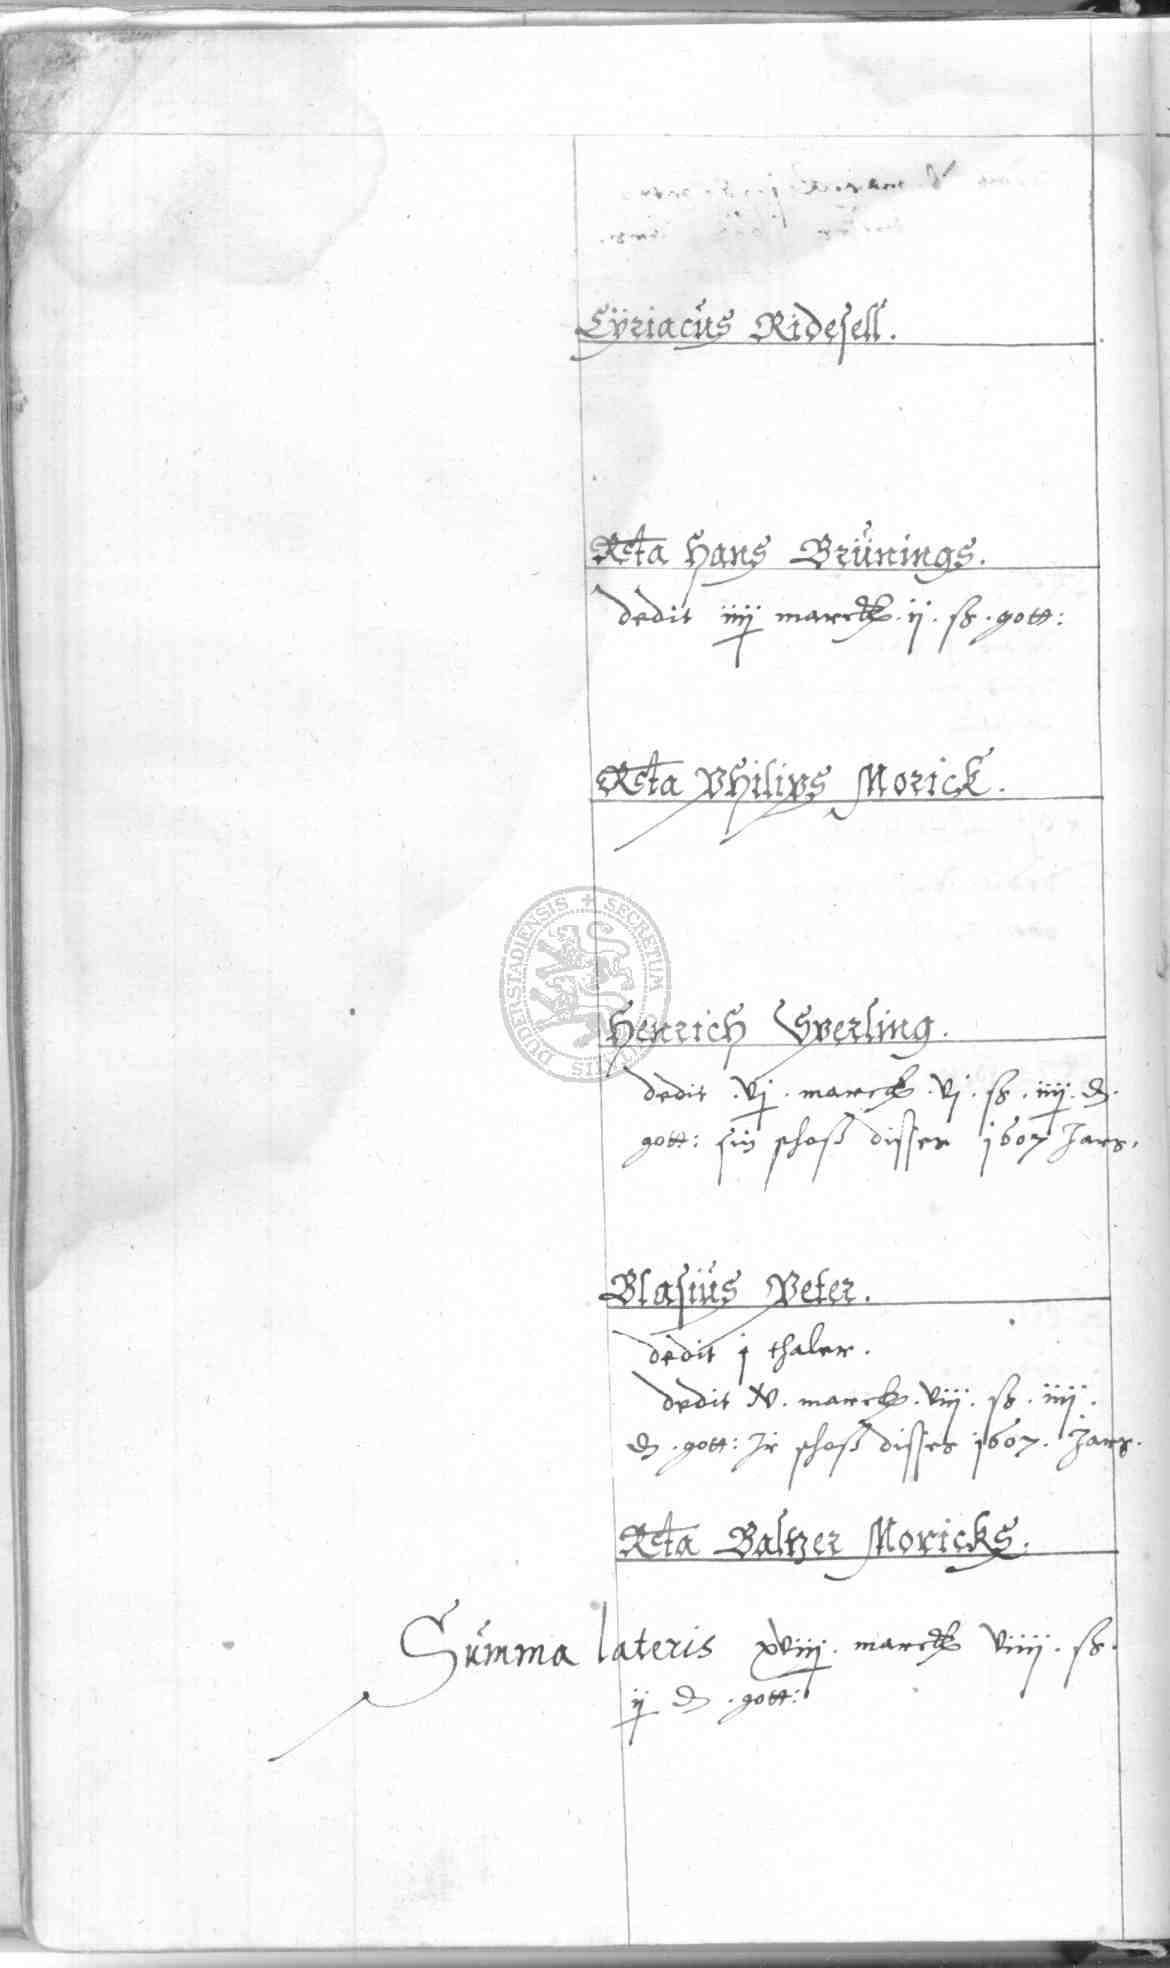 Cÿriacus Ridesell.
Rcta Hans Brünings.
dedit iiij marck. ij. ß. gott:
Rcta Philips Morick.
Henrich Sperling.
dedit .vj. marck .vj. ß. iiij. d.
gott: sin schoß disser 1607 Jars.
Blasius Peter.
dedit j thaler.
dedit marck. viij. ß. iiij.
d. gott: Jr schoß disses 1607. Jars.
Rcta Baltzer Moricks.
Summa lateris xviij. marck viiij. ß.
ij d. gott:
SECRETUM DUDERSTADIENSIS